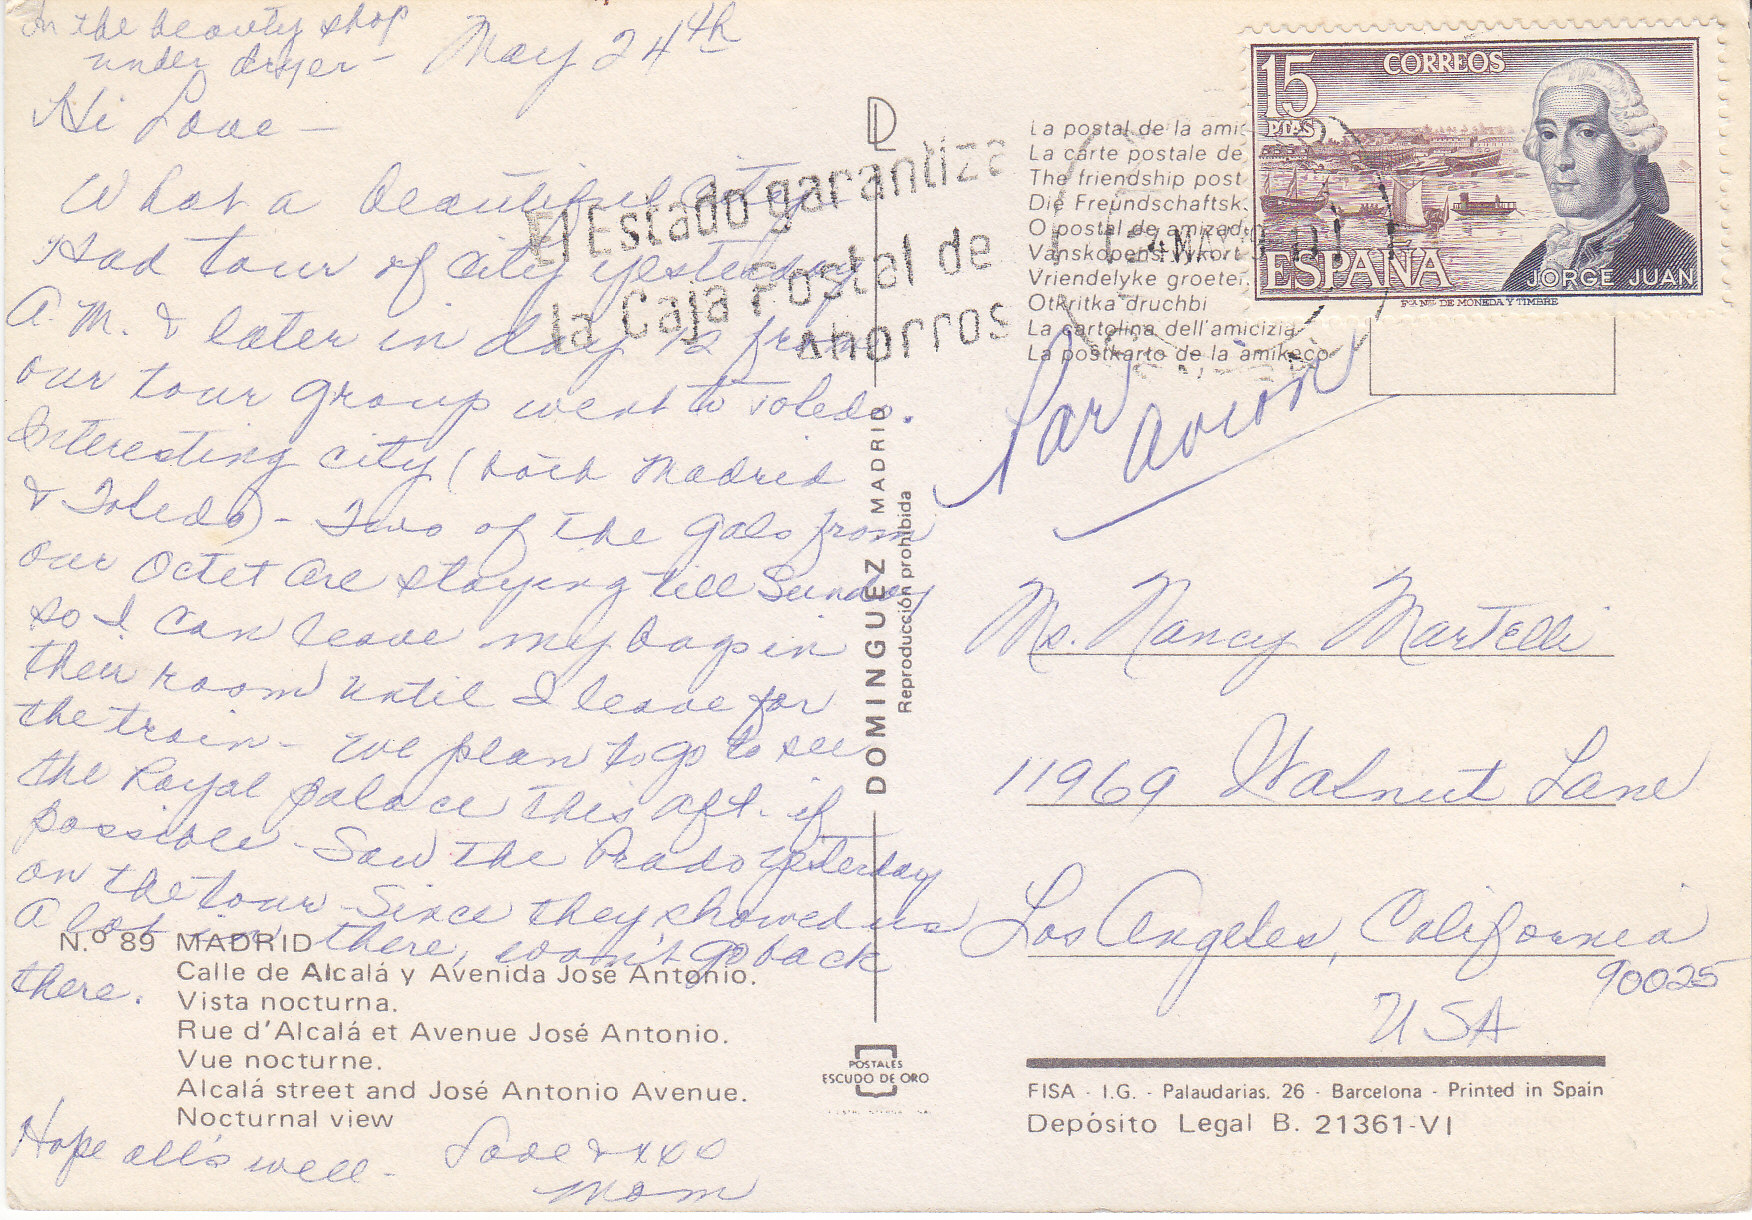 In the beauty shop
under dryer - May 24th
Hi Love -
What a beautiful city.
Had tour of city yesterday
A.M. & later in day 12 from
our tour group went to Toledo.
Interesting city (both Madrid
& Toledo) - Two of the gals from
our Octet are staying till Sunday
so I can leave my bags in
their room until I leave for
the train - We plan to go to see
the Royal palace this aft. if
possible - Saw the Prado yesterday
on the tour - Since they showed us
a lot in there, won't go back
there.
Hope all's well - Love & xxo
Mom
N.º 89 MADRID
Calle de Alcalá y Avenida José Antonio.
Vista nocturna.
Rue d'Alcalá et Avenue José Antonio.
Vue nocturne.
Alcalá street and José Antonio Avenue.
Nocturnal view
El Estado garantiza
la Caja Postal de
Ahorros
DL
DOMINGUEZ MADRID
Reproducción prohibida
POSTALES
ESCUDO DE ORO
La postal de la ami
La carte postale de
The friendship post
Die Freundschaftsk
O postal de amizad
Vänskopens vykort
Vriendelyke groeter
Otkritka druchbi
La cartolina dell'amicizia
La postkarto de la amikeco
24 MAY
15
PTAS
CORREOS
ESPAÑA
JORGE JUAN
F.ca N.al DE MONEDA Y TIMBRE
Par avion
Ms. Nancy Martelli
11969 Walnut Lane
Los Angeles, California
90025
USA
FISA - I.G. - Palaudarias, 26 - Barcelona - Printed in Spain
Depósito Legal B. 21361-VI